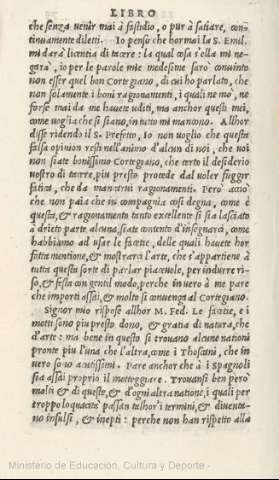 LIBRO
che senza venir mai à fastidio, o pur à satiare, con-
tinuamente diletti. Io penso che hormai la S. Emil.
mi darà licentia di tacere: la qual cosa s'ella mi ne-
garà, io per le parole mie medesime sarò convinto
non esser quel bon Cortegiano, di cui ho parlato, che
non solamente i boni ragionamenti, i quali ne mo, ne
forse mai da me havete uditi, ma anchor questi mei,
come voglia che si siano, in tutto mi mancono. Allhor
disse ridendo il S. Prefetto, Io non voglio che questa
falsa opinion resti nell'animo d'alcun di noi, che voi
non siate bonissimo Cortegiano, che certo il desiderio
vostro di tacere, piu presto procede dal voler fuggir
fatica, che da mancarvi ragionamenti. Però accio
che non paia che in compagnia cosi degna, come è
questa, & ragionamento tanto excellente si sia lasciato
à drieto parte alcuna, siate contento d'insegnarci, come
habbiamo ad usar le facetie, delle quali havete hor
fatta mentione, & mostrarci l'arte, che s'appartiene à
tutta questa sorte di parlar piacevole, per indurre ri-
so, & festa con gentil modo, perche in vero à me pare
che importi assai, & molto si convenga al Cortegiano.
Signor mio rispose allhor M. Fed. Le facetie, e i
motti sono piu presto dono, & gratia di natura, che
d'arte: ma bene in questo si trovano alcune nationi
pronte piu l'una che l'altra, come i Thoscani, che in
vero sono acutissimi. Pare anchor che à i spagnoli
sia assai proprio il motteggiare. Trovansi ben però
molti & di queste, & d'ogni altra natione, i quali per
troppo loquacità passan talhor i termini, & diventa-
no insulsi, & inepti: perche non han rispetto alla
Ministerio de Educación, Cultura y Deporte -